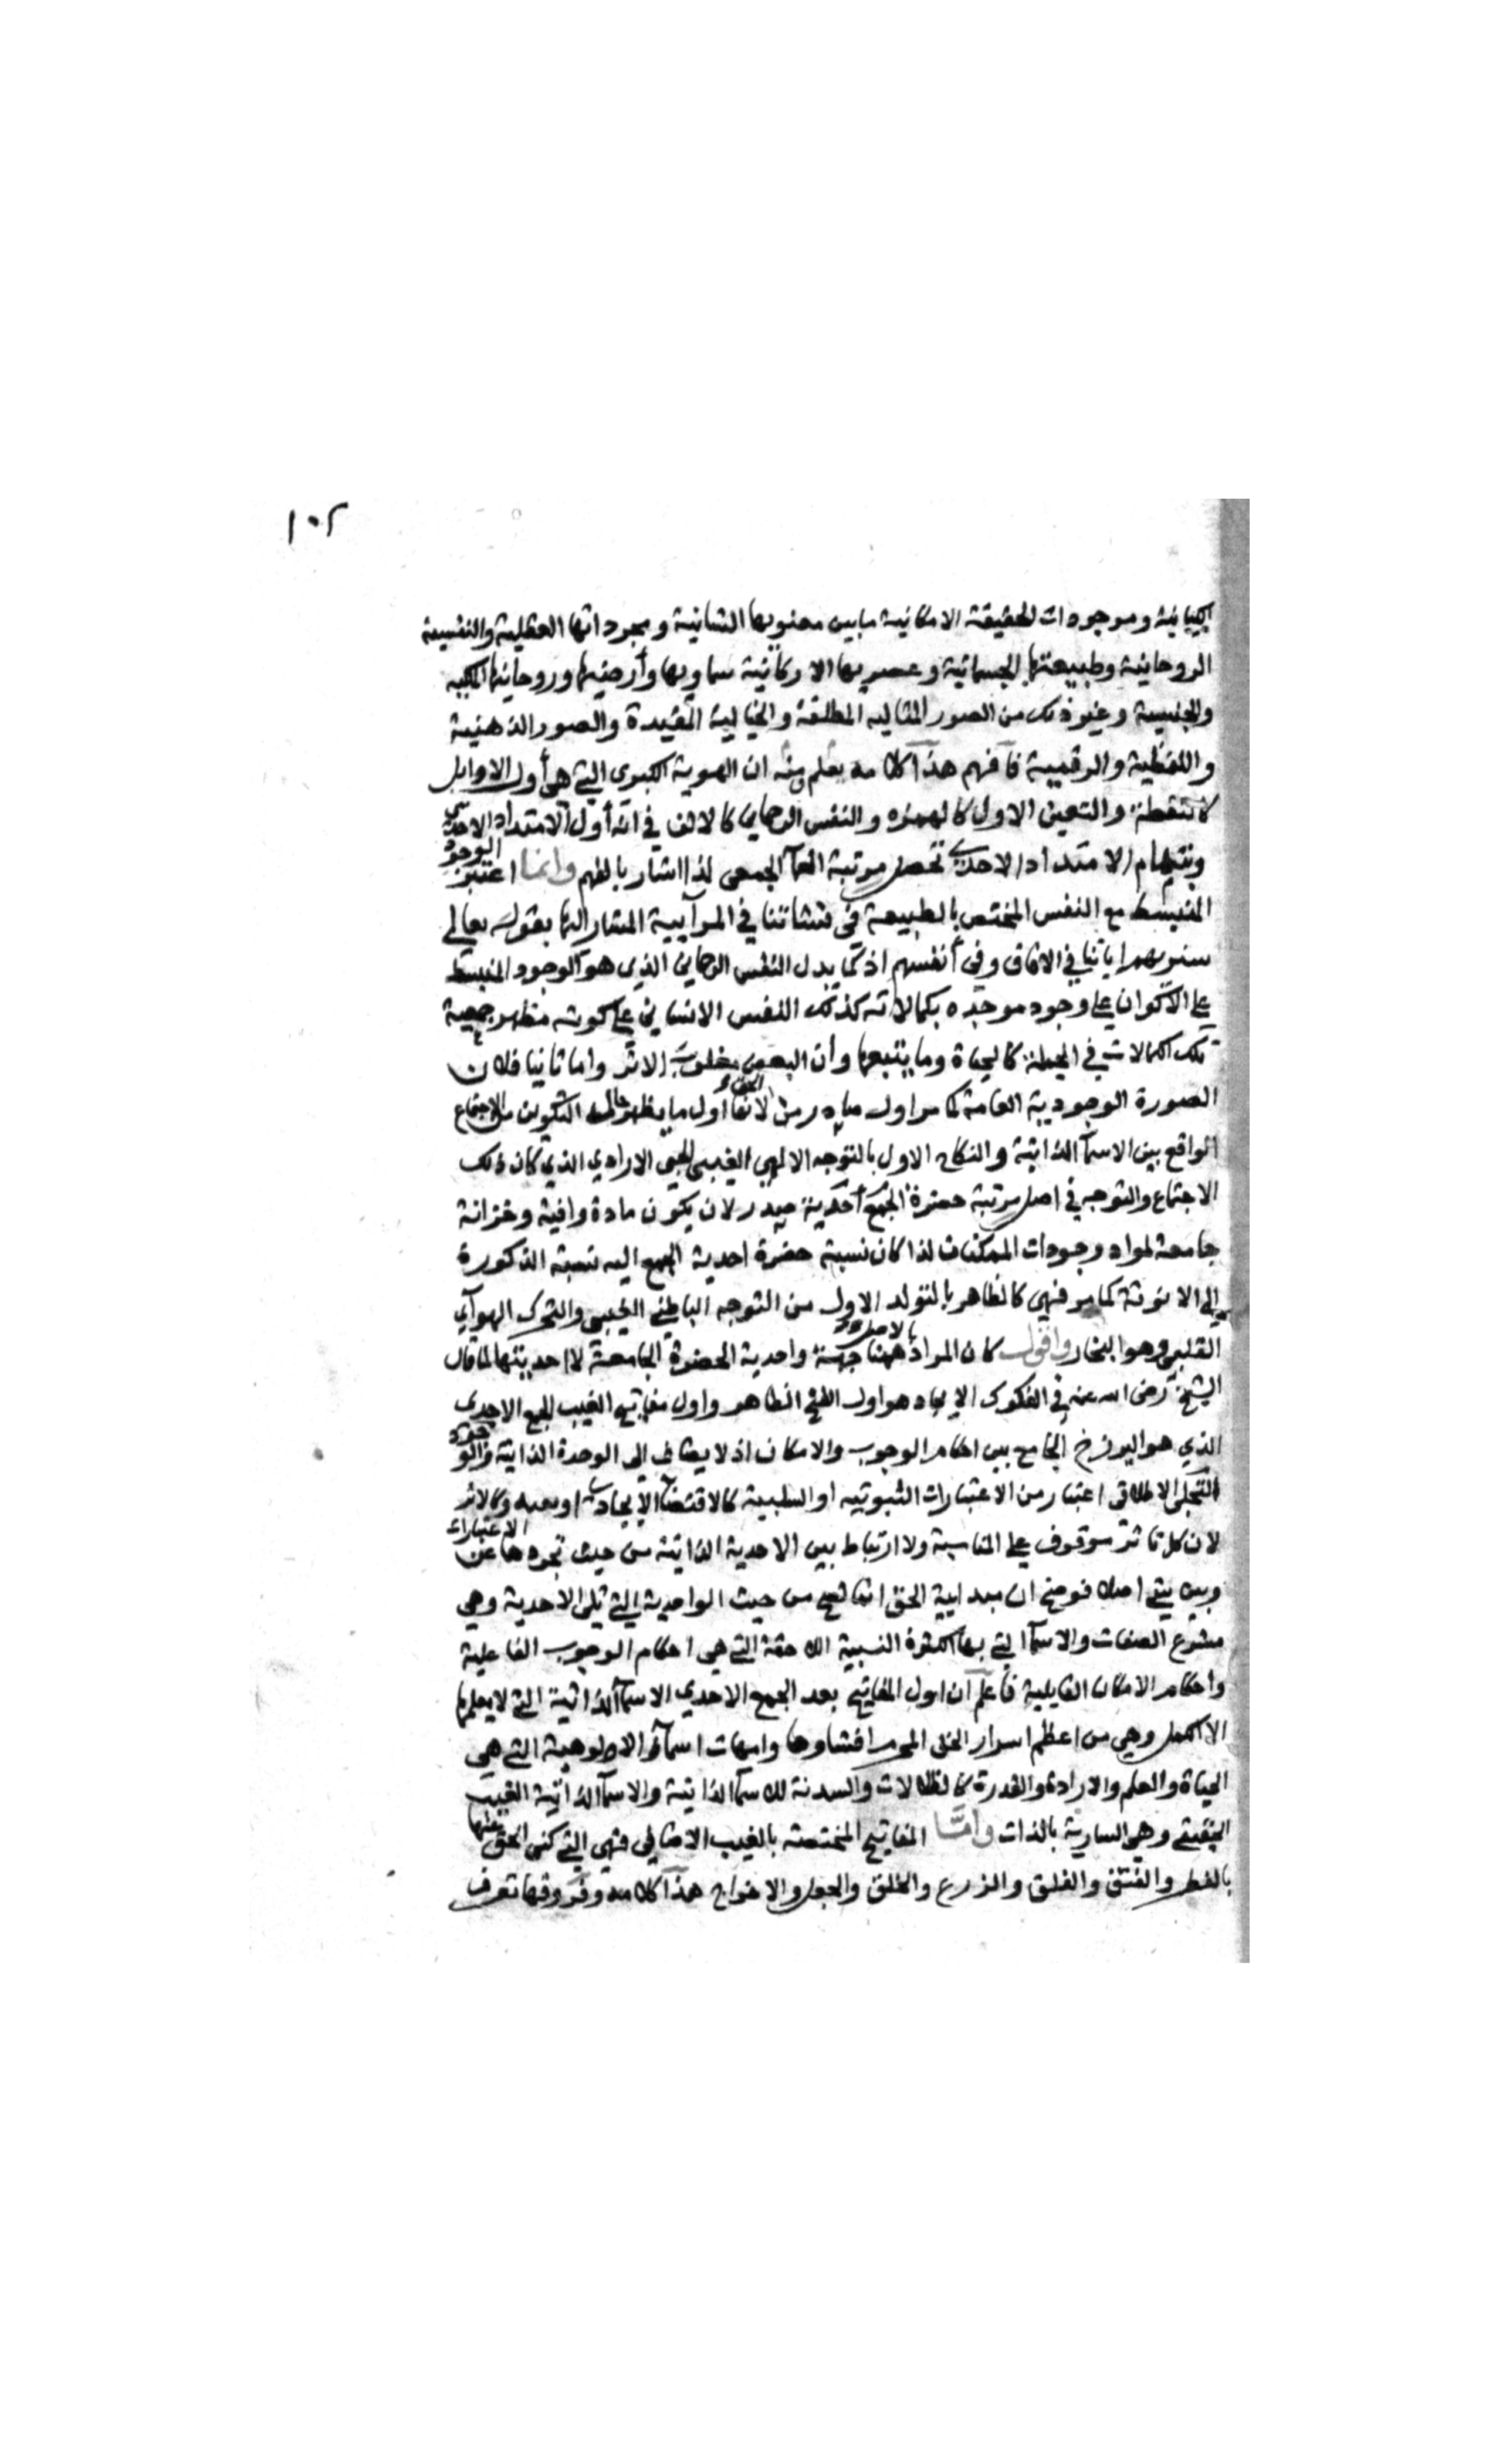 ١٠٢
الكيانية وموجودات الحقيقة الامكانية مابين معنويها الثانية ومجرداتها العقلية والنفسية
الروحانية وطبيعتها الجسمانية وعنصريها الاركانية سماويها وأرضيها وروحانيها الملكية
والجنسية وغيرذلك من الصور المثالية المطلقة والخيالية المقيدة والصور الذهنية
واللفظية والرقمية فافهم هذا كلامه يعلم منه ان الهوية الكبرى التي هي أول الاوايل
كالنقطة والتعين الاول كالهمزة والنفس الرحماني كالالف في انه أول الامتداد الاحدي
وبتمام الامتداد الاحدي تحصل مرتبة العمآ الجمعي لذا اشار بالفهم وانما اعتبر الوجود
المنبسط مع النفس المختص بالطبيعة في نشاتنا في المرآيية المشار اليها بقوله تعالى
سنريهم اياتنا في الافاق وفي أنفسهم اذ كما يدل النفس الرحماني الذي هو الوجود المنبسط
على الاكوان على وجود موجده بكمالاته كذلك النفس الانساني على كونه مظهر جمعية
تلك الكمالات في الجملة كالحياة وما يتبعها وأن البعض مغلوب الاثر واما ثانيا فلان
الصورة الوجودية العامة كما مر اول صادر من الانفاء اول ما يظهر حال التكوين من الاجتماع
الواقع بين الاسمآ الذاتية والنكاح الاول بالتوجه الالهي الغيبي الحبي الارادي الذي كان ذلك
الاجتماع والتوجه في اصل مرتبة حضرة الجمع أحدية صدر لان يكون مادة وافية وخزانة
جامعة لمواد وجودات الممكنات لذا كان نسبة حضرة احدية الجمع اليه نسبة الذكورة
الى الانوثة كما مر فهي كالظاهر بالتولد الاول من التوجه الباطني الحبي والتحرك الهوآي
القلبي وهو البخار واقول كان المراد بالاصل ههنا جهة واحدية الحضرة الجامعة لا احديتها لما قال
الشيخ رضى الله عنه في الفكوك الايجاد هو اول الفتح الظاهر واول مفاتيح الغيب الجمع الاحدي
الذي هو البرزخ الجامع بين احكام الوجوب والامكان اذ لايضاف الى الوحدة الذاتية والوجود
التجلي الاطلاقي اعتبار من الاعتبارات الثبوتيه او السلبية كالاقتضاء الايجادي او بعده وكالاثر
لان كل تاثر موقوف على المناسبة ولا ارتباط بين الاحدية الذاتية من حيث تجردها عن الاعتبارات
وبين شئ اصلا فوضح ان مبدايية الحق انما تصح من حيث الواحدية التي تلى الاحدية وهي
مشرع الصفات والاسمآ التي بها الكثرة النسبية اللاحقة التي هي احكام الوجوب الفاعلية
واحكام الامكان القابلية فاعلم ان اول المفاتيح بعد الجمع الاحدي الاسمآ الذاتية التي لايعلمها
الا الكمل وهي من اعظم اسرار الحق المحرم افشاوها وامهات اسمآء الالوهية التي هي
الحياة والعلم والارادة والقدرة كالظلالات والسدنة للاسمآ الذاتية والاسمآ الذاتية الغيب
الحقيقي وهي السارية بالذات وامّا المفاتيح المختصة بالغيب الاضافي فهي التي كنى الحق عنها
بالفطر والفتق والفلق والزرع والخلق والجعل والاخراج هذا كلامه وفروقها تعرف